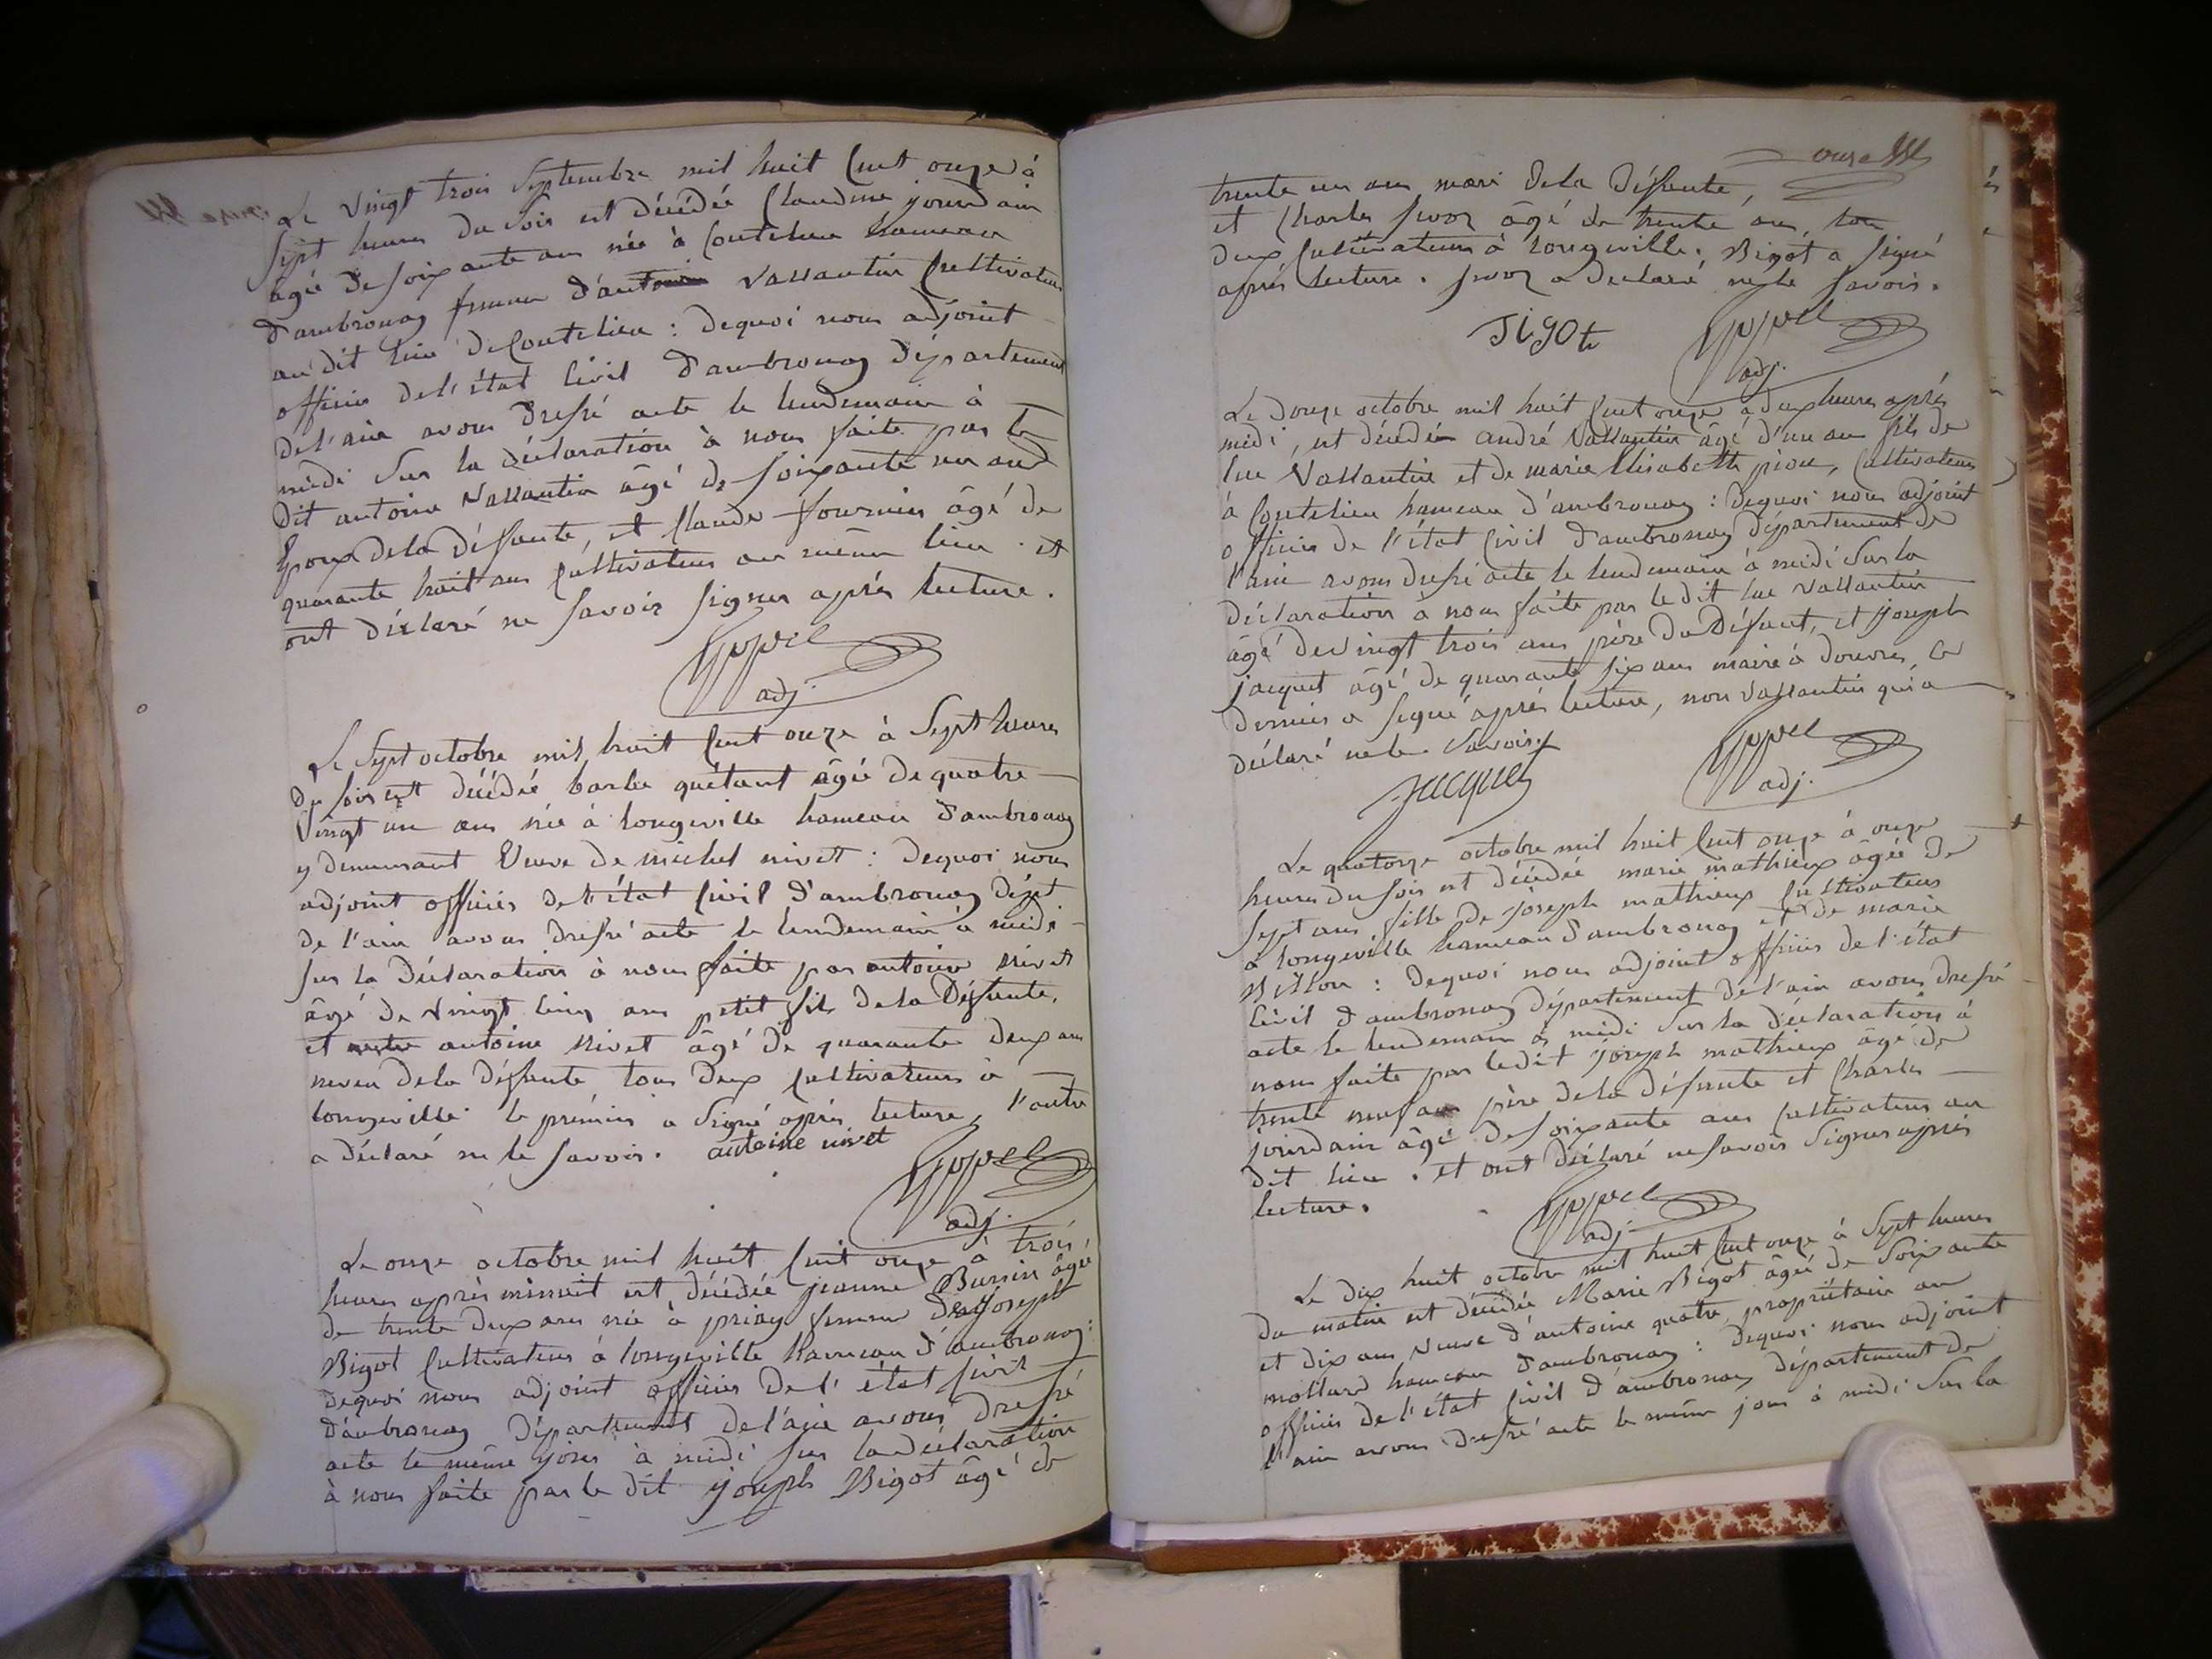 Le vingt trois Septembre mil huit Cent onze à
Sept heures du Soir est décédée Claudine jourdain
âgée de soixante ans née à Coutelieu hameau
d'ambronay femme d'antoine Vallantin Cultivateur
au dit lieu de Coutelieu : dequoi nous adjoint
officier de l'état Civil d'ambronay département
de l'ain avons dressé acte le lendemain à
midi Sur la déclaration à nous faite par le
dit antoine Vallantin âgé de soixante un ans
Epoux de la défunte, et Claude fournier âgé de
quarante huit ans Cultivateur au même lieu . et
ont déclaré ne savoir signer après lecture .
adj.
Le Sept octobre mil huit Cent onze à Sept heures
du soir est décédée barbe quétant âgée de quatre
Vingt un ans née à longeville hameau d'ambronay
y demeurant Veuve de michel nivet : dequoi nous
adjoint officier de l'état Civil d'ambronay dépt
de l'ain avons dressé acte le lendemain à midi
sur la déclaration à nous faite par antoine Nivet
âgé de vingt cinq ans petit fils de la défunte,
et antoine Nivet âgé de quarante deux ans
neveu de la défunte tous deux Cultivateurs à
longeville. le prémier a Signé après lecture, l'autre
a déclaré ne le savoir . antoine nivet
adj.
Le onze octobre mil huit Cent onze à trois
heures après minuit est décédée jeanne Burnin âgée
de trente deux ans née à priay femme de joseph
Bigot Cultivateur à longeville hameau d'ambronay :
dequoi nous adjoint officier de l'état Civil
d'ambronay Département de l'ain avons dressé
acte le même jour à midi sur la déclaration
à nous faite par le dit joseph Bigot âgé de
onze
trente un ans mari de la défunte,
et Charles âgé de trente ans, tou
deux Cultivateurs à longeville. Bigot a signé
après lecture . a declaré ne le savoir .
adj.
Le douze octobre mil huit Cent onze à deux heures après
midi, est décédé andré Vallantin âgé d'un an fils de
luc Vallantin et de marie Elisabeth piou, Cultivateur
à Coutelieu hameau d'ambronay : dequoi nous adjoint
officier de l'état Civil d'ambronay département de
l'ain avons dressé acte le lendemain à midi Sur la
déclaration à nous faite par le dit luc Vallantin
âgé de vingt trois ans père du défunt, et joseph
jacquet âgé de quarante six ans maire à douvres, ce
dernier a signé après lecture, non Vallantin qui a
déclaré ne le Savoir.
Jacquet
adj.
Le quatorze octobre mil huit Cent onze à onze
heures du soir est décédée marie mathieux âgée de
Sept ans fille de joseph mathieux Cultivateur
à longeville hameau d'ambronay et de marie
Billon : dequoi nous adjoint officier de l'état
Civil d'ambronay département de l'ain avons dressé
acte le lendemain à midi Sur la déclaration à
nous faite par le dit joseph mathieux âgé de
trente neuf ans père de la défunte et Charles
jourdain âgé de soixante ans Cultivateurs au
dit lieu . et ont déclaré ne savoir Signer après
lecture .
adj.
Le dix huit octobre mil huit Cent onze à Sept heures
du matin est décédée Marie Bigot âgée de Soixante
et dix ans veuve d'antoine quatre, propriétaire au
mollard hameau d'ambronay : dequoi nous adjoint
officier de l'état Civil d'ambronay département de
l'ain avons dressé acte le même jour à midi Sur la